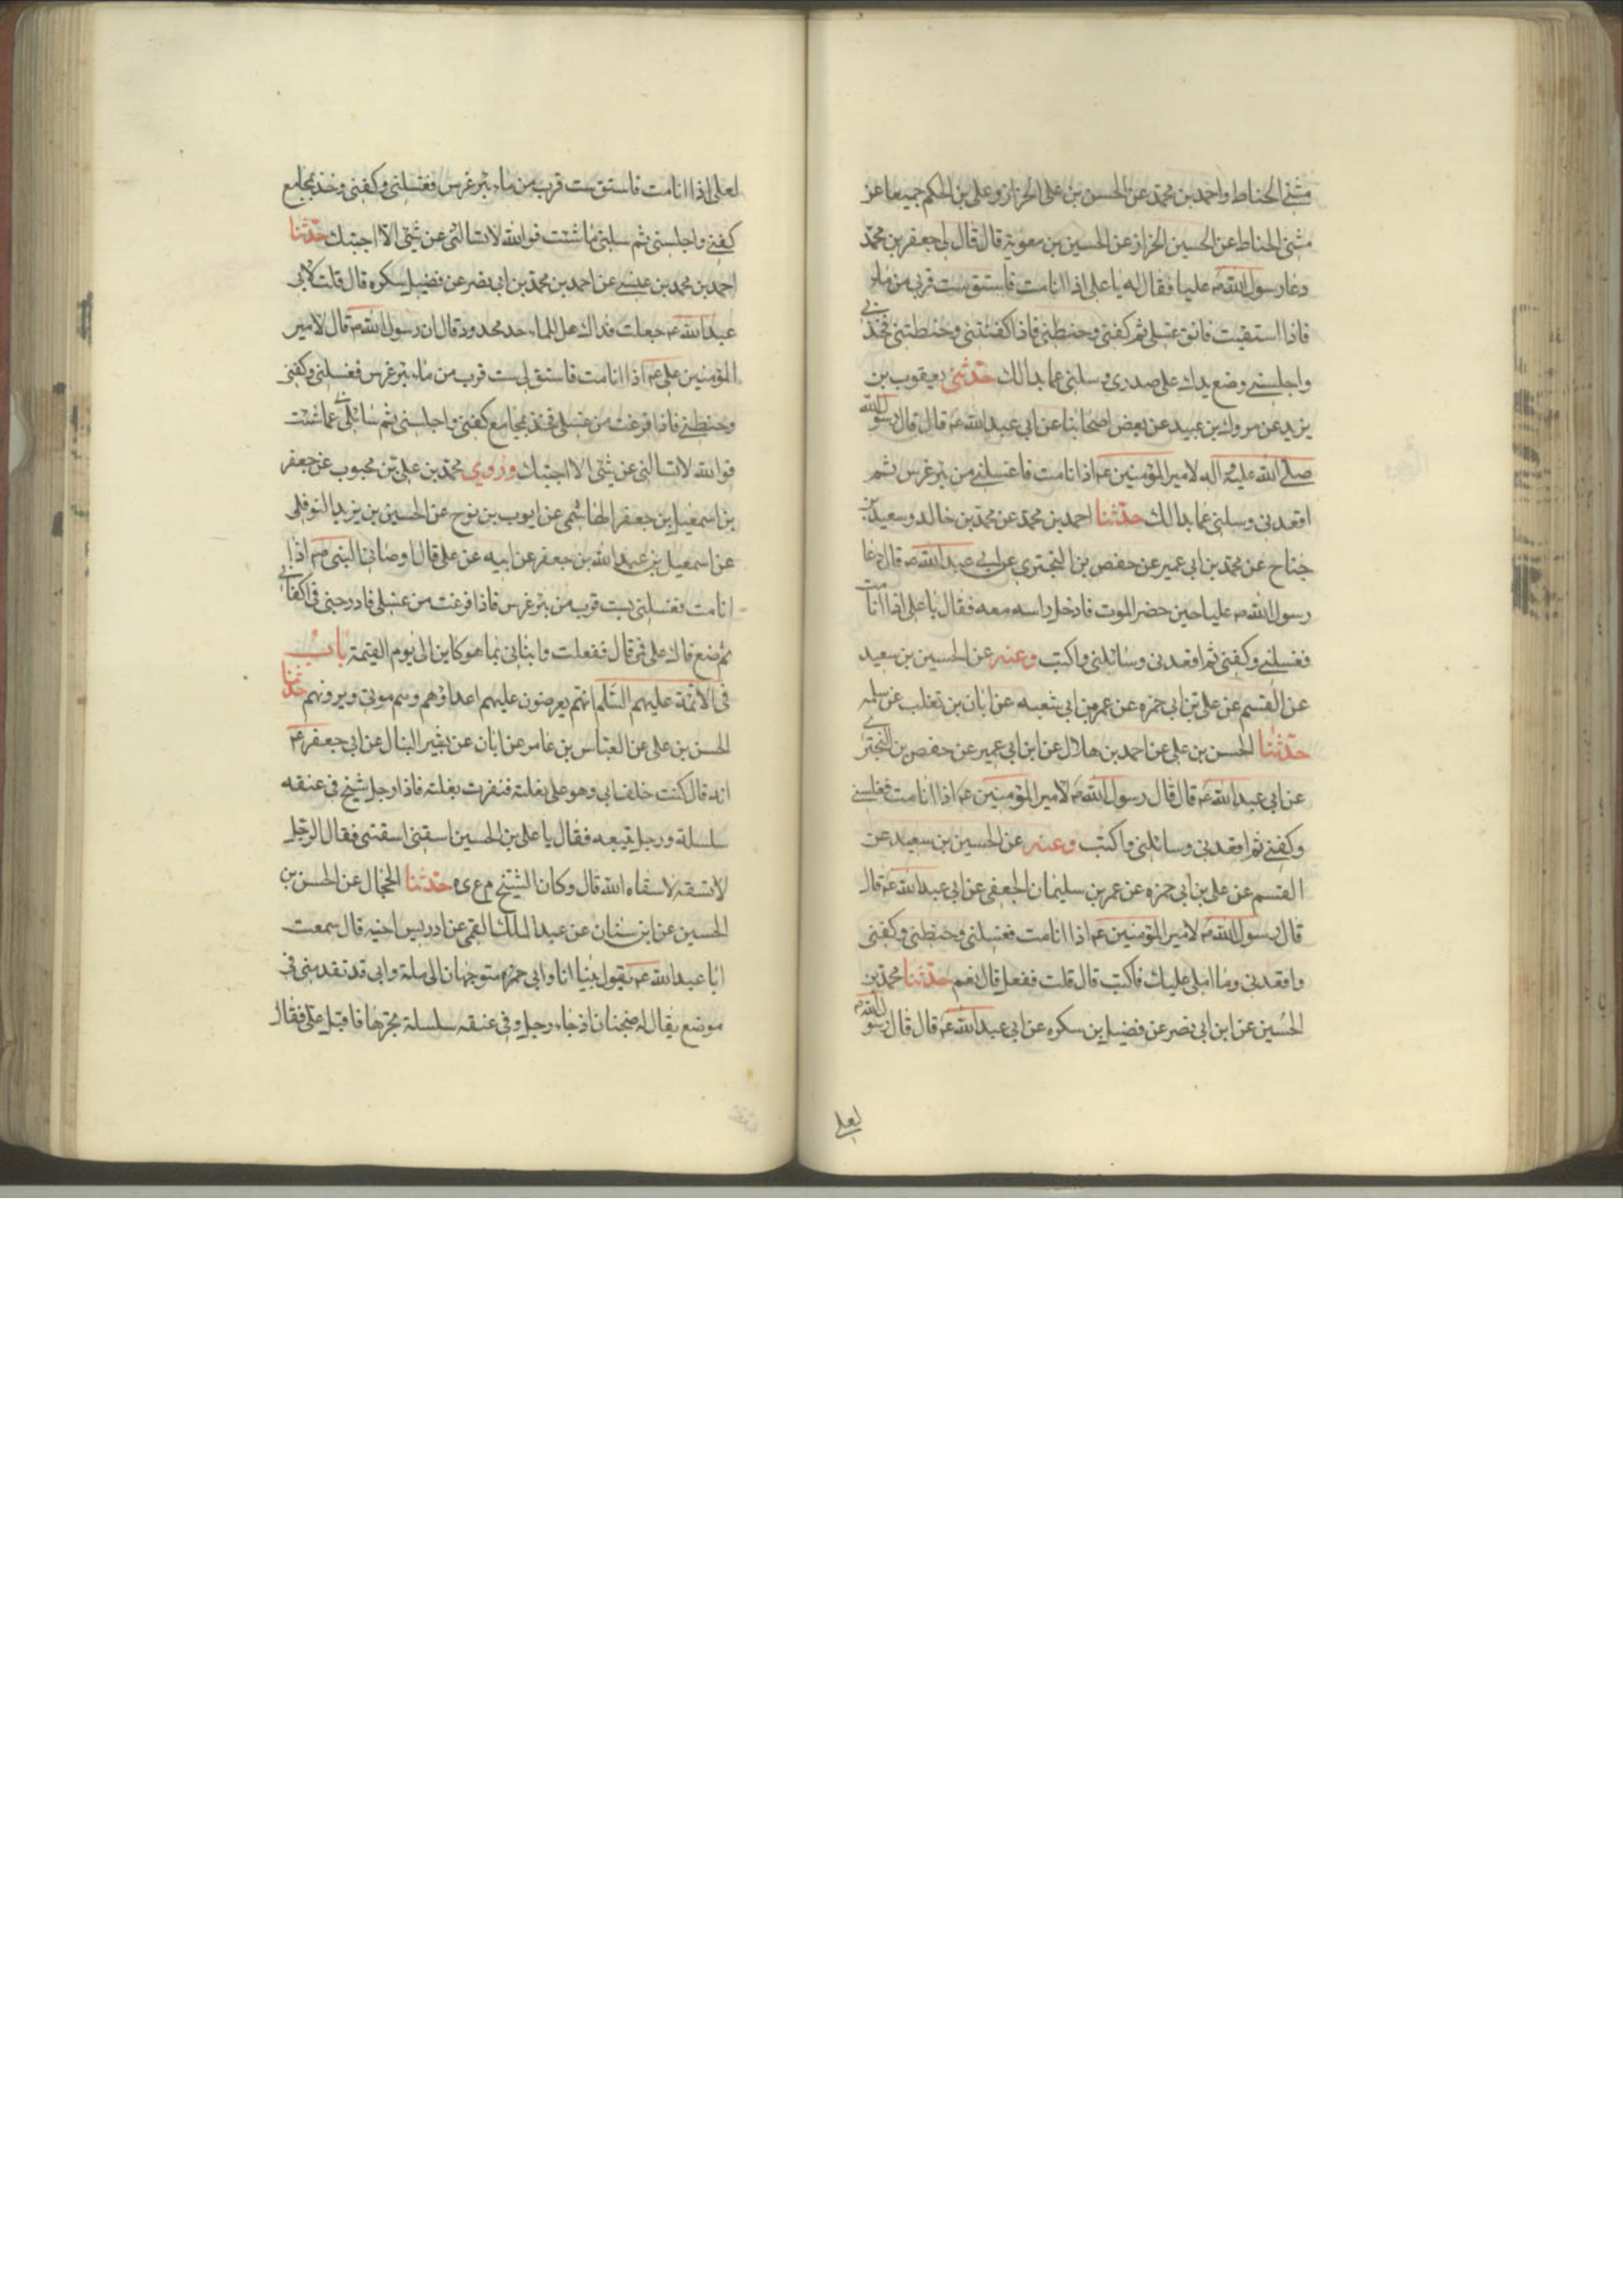 مثنى الحناط واحمد بن محمد عن الحسن بن على الخزاز وعلى بن الحكم جميعا عن
مثنى الحناط عن الحسين الخزاز عن الحسين بن معوية قال قال لى جعفر بن محمد
دعا رسول الله ص عليا فقال له يا على اذا انا مت فاستق ست قرب من ماء
فاذا استقيت فانق غسلى ثم كفنى وحنطنى فاذا كفنتنى وحنطتنى فخذ بى
واجلسنى وضع يدك على صدرى وسلنى عما بدا لك حدثنى يعقوب بن
يزيد عن مروك بن عبيد عن بعض اصحابنا عن ابى عبد الله ع قال قال رسول الله
صلى الله عليه وآله لامير المؤمنين ع اذا انا مت فاغسلنى من بئر غرس ثم
اقعدنى وسلنى عما بدا لك حدثنا احمد بن محمد عن محمد بن خالد وسعيد بن
جناح عن محمد بن ابى عمير عن حفص بن البخترى عن ابى عبد الله ع قال دعا
رسول الله ص عليا حين حضر الموت فادخل راسه معه فقال يا على اذا انا مت
فغسلنى وكفنى ثم اقعدنى وسائلنى واكتب وعنه عن الحسين بن سعيد
عن القسم عن على بن ابى حمزه عن عمر بن ابى شعبه عن ابان بن تغلب عن مثله
حدثنا الحسن بن على عن احمد بن هلال عن ابن ابى عمير عن حفص بن البخترى
عن ابى عبد الله ع قال قال رسول الله ص لامير المؤمنين ع اذا انا مت فغسلنى
وكفنى ثم اقعدنى وسائلنى واكتب وعنه عن الحسين بن سعيد عن
القسم عن على بن ابى حمزه عن عمر بن سليمان الجعفى عن ابى عبد الله ع قال
قال رسول الله ص لامير المؤمنين ع اذا انا مت فغسلنى وحنطنى وكفنى
واقعدنى وما املى عليك فاكتب قال قلت ففعل قال نعم حدثنا محمد بن
الحسين عن ابن ابى نصر عن فضيل بن سكره عن ابى عبد الله ع قال قال رسول الله ص
لعلى
لعلى اذا انا مت فاستق ست قرب من ماء بئر غرس فغسلنى وكفنى وخذ بمجامع
كفنى واجلسنى ثم سلنى ما شئت فوالله لا تسالنى عن شئ الا اجبتك حدثنا
احمد بن محمد بن عيسى عن احمد بن محمد بن ابى نصر عن فضيل سكره قال قلت لابى
عبد الله ع جعلت فداك هل للماء حد محدود قال ان رسول الله ص قال لامير
المؤمنين على ع اذا انا مت فاستق لى ست قرب من ماء بئر غرس فغسلنى وكفنى
وحنطنى فاذا فرغت من غسلى فخذ بمجامع كفنى واجلسنى ثم سائلنى عما شئت
فوالله لا تسالنى عن شئ الا اجبتك وروى محمد بن على بن محبوب عن جعفر
بن اسمعيل بن جعفر الهاشمى عن ايوب بن نوح عن الحسين بن يزيد النوفلى
عن اسمعيل بن عبد الله بن جعفر عن ابيه عن على قال اوصانى النبى ص اذا
انا مت فغسلنى بست قرب من بئر غرس فاذا فرغت من غسلى فادرجنى فى اكفانى
ثم ضع فاك على فى قال ففعلت وانبانى بما هو كاين الى يوم القيمة باب
فى الائمة عليهم السلم انهم يعرضون عليهم اعداؤهم وهم موتى ويرونهم حدثنا
الحسن بن على عن العباس بن عامر عن ابان عن بشير النبال عن ابى جعفر ع
انه قال كنت خلف ابى وهو على بغلته فنفرت بغلته فاذا رجل شيخ فى عنقه
سلسلة ورجل يتبعه فقال يا على بن الحسين اسقنى اسقنى فقال الرجل
لا تسقه لا سقاه الله قال وكان الشيخ م ع ى ه حدثنا الحجال عن الحسن بن
الحسين عن ابن سنان عن عبد الملك القمى عن ادريس اخيه قال سمعت
ابا عبد الله ع يقول بينا انا وابى متوجهان الى مكة وابى قد تقدمنى فى
موضع يقال له ضجنان اذ جاء رجل وفى عنقه سلسلة يجرها فاقبل على فقال